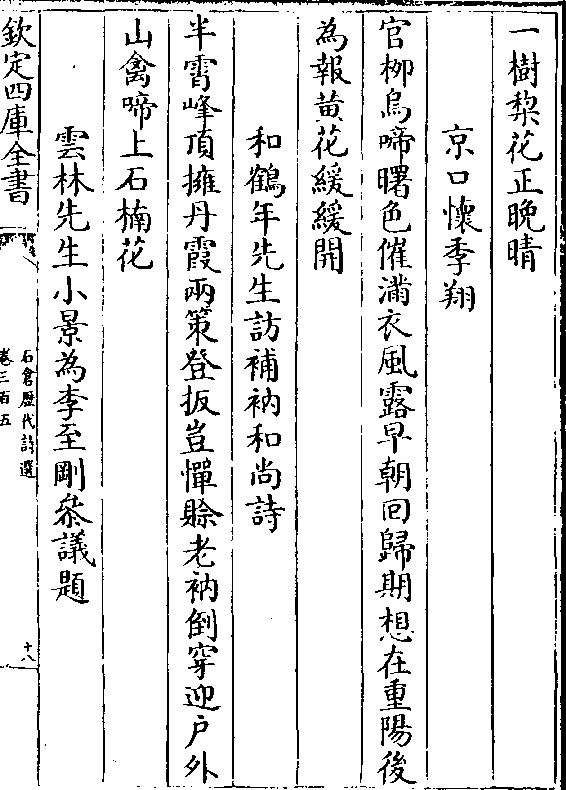 一樹棃花正晚晴
京口懷季翔
官栁烏啼曙色催滿衣風露早朝回歸期想在重陽後
為報黄花緩緩開
和鶴年先生訪補衲和尚詩
半霄峰頂擁丹霞兩策登扳豈憚賖老衲倒穿迎户外
山禽啼上石楠花
雲林先生小景為李至剛叅議題
欽定四庫全書
石倉歴代詩選
卷三百五
十八